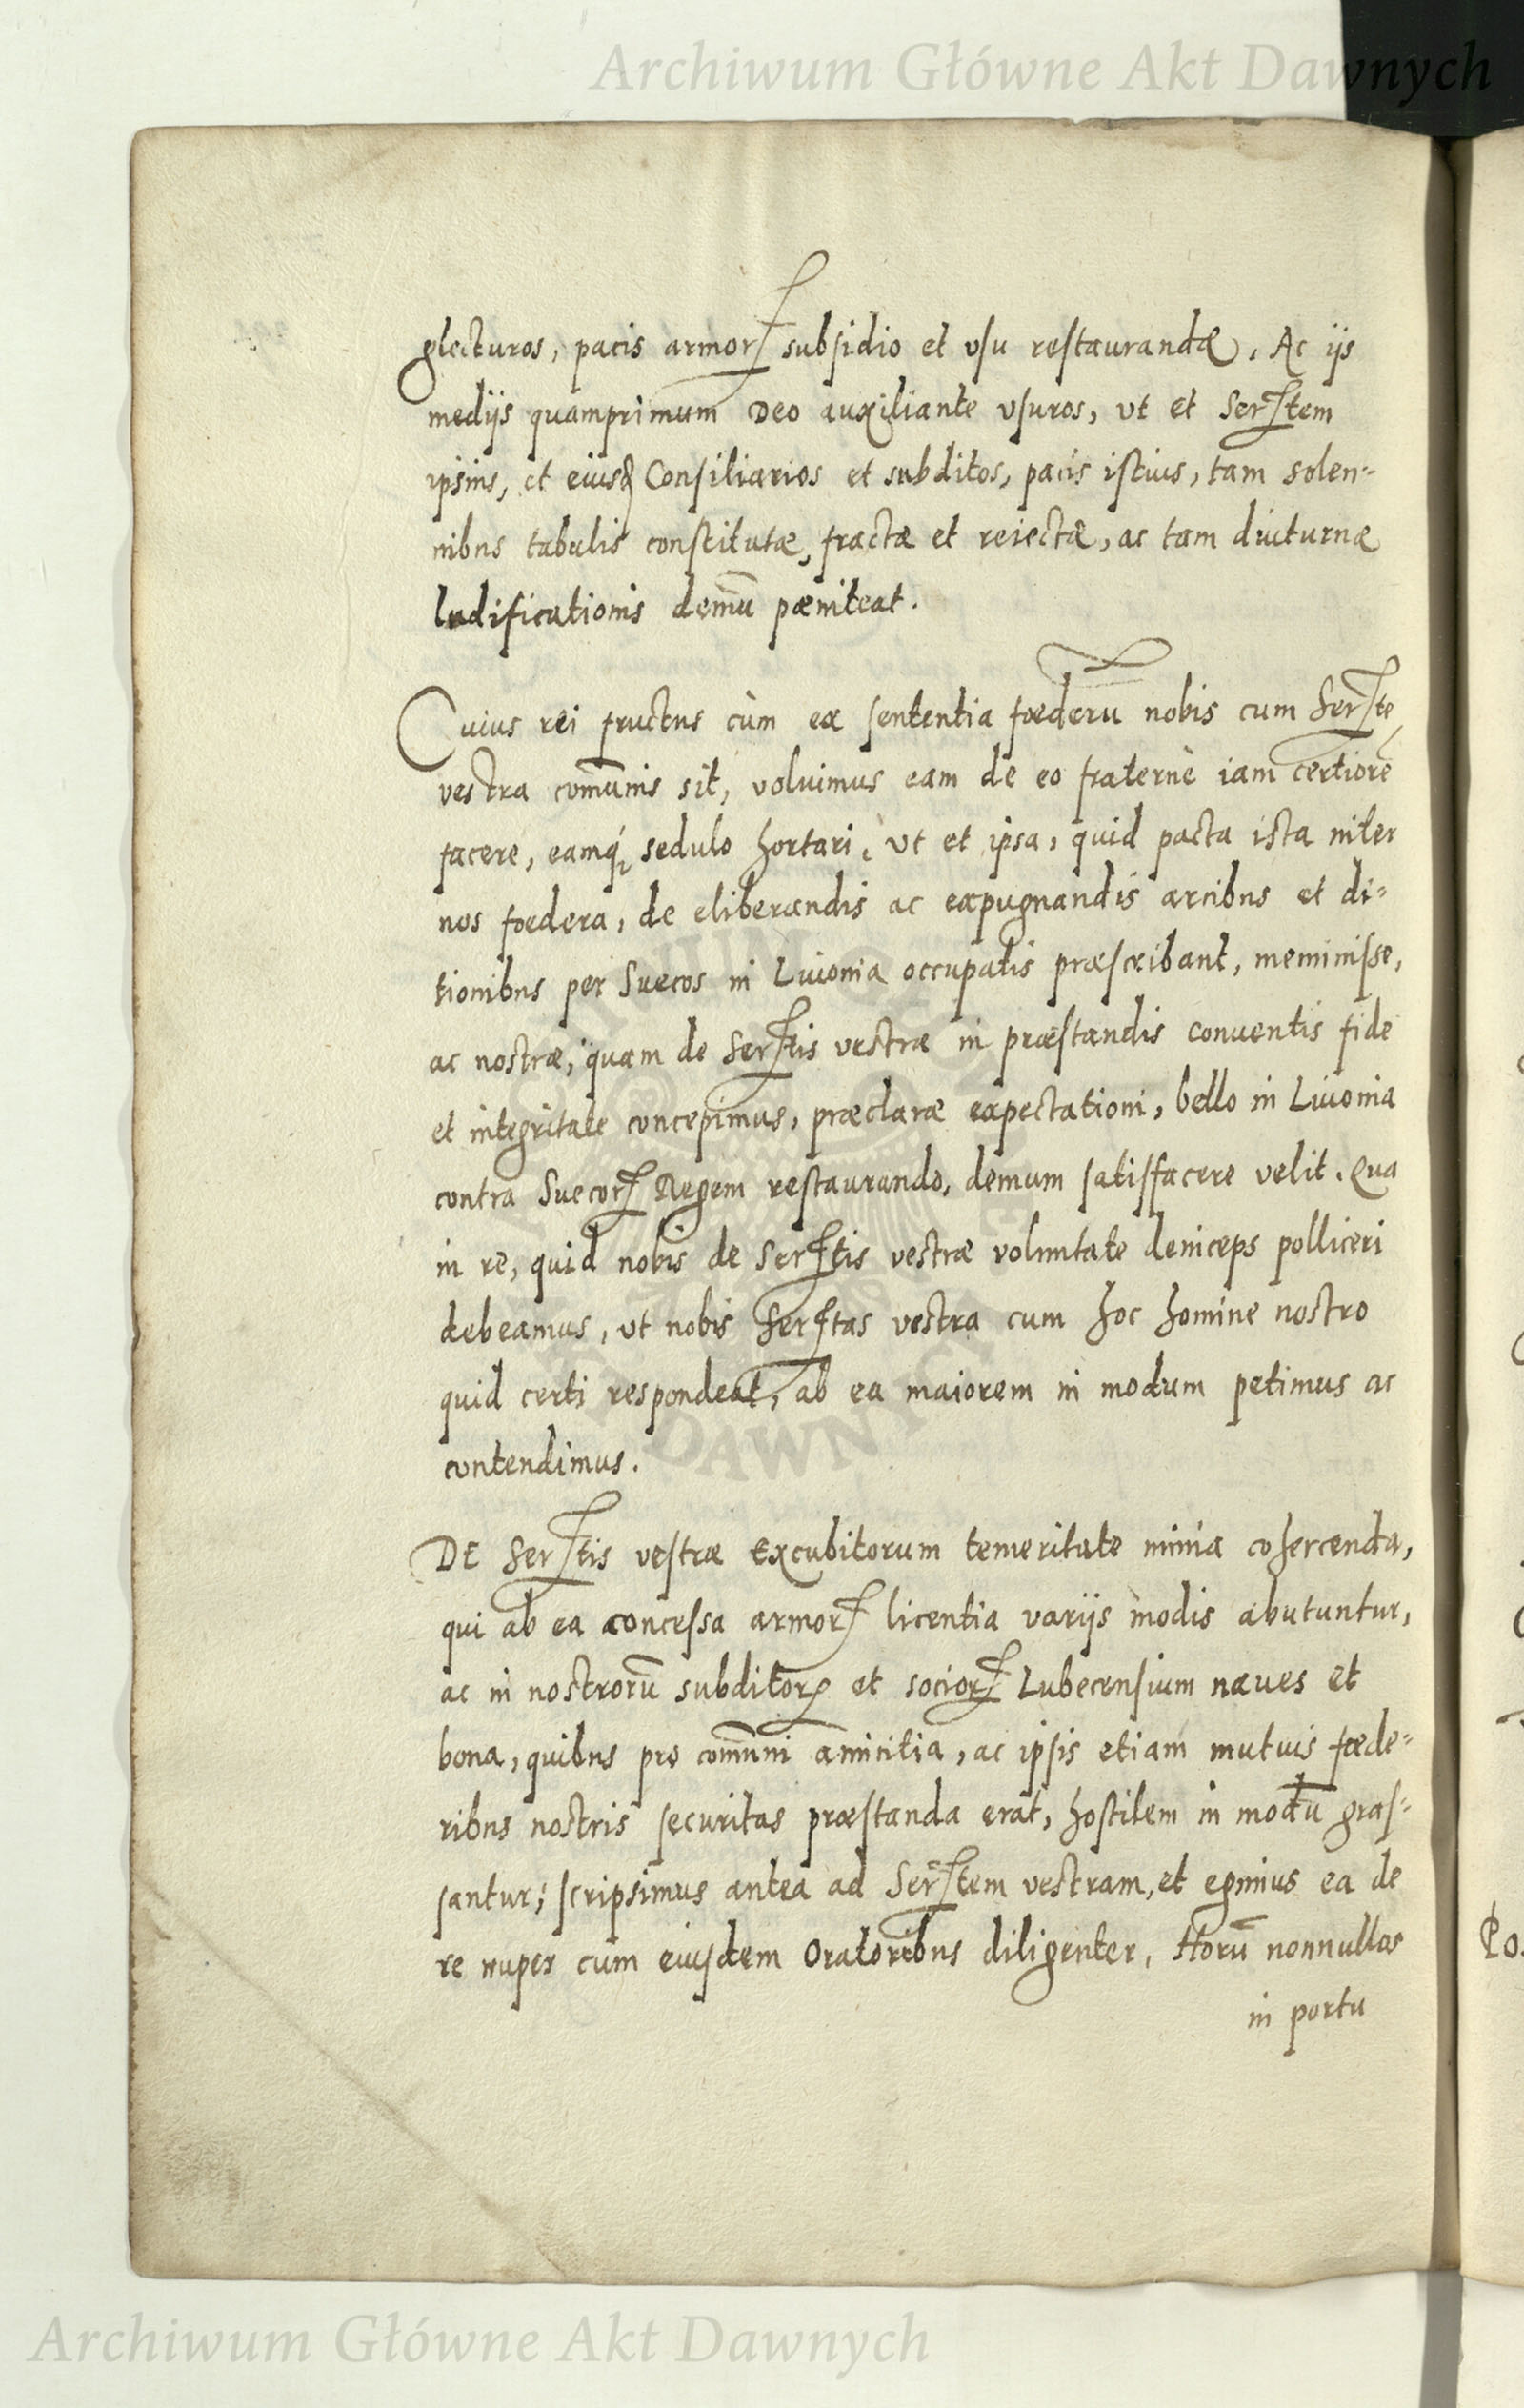 Archiwum Główne Akt Dawnych
glecturos, pacis armorꝝ subsidio et vsu restaurandæ. Ac ijs
medijs quamprimum Deo auxiliante vsuros, vt et Serꝭtem
ipsius, et eiusꝗ Consiliarios et subditos, pacis istius, tam solen-
nibus tabulis constitutæ, fractæ et reiectæ, ac tam diuturnæ
ludificationis demū pæniteat.
Cuius rei fructus cùm ex sententia fœderū nobis cum Serꝭte
vestra com̄unis sit, voluimus eam de eo fraternè iam certiorē
facere, eamq́ꝫ sedulo hortari, vt et ipsa, quid pacta ista inter
nos fœdera, de eliberandis ac expugnandis arcibus et di-
tionibus per Suecos in Liuonia occupatis præscribant, meminisse,
ac nostræ, quam de Serꝭtis vestræ in præstandis conuentis fide
et integritate concepimus, præclaræ expectationi, bello in Liuonia
contra Suecorꝝ Regem restaurando, demum satisfacere velit. Qua
in re, quid nobis de Serꝭtis vestræ voluntate deinceps polliceri
debeamus, vt nobis Serꝭtas vestra cum hoc homine nostro
quid certi respondeat, ab ea maiorem in modum petimus ac
contendimus.
DE Serꝭtis vestræ Excubitorum temeritate nimia cohercenda,
qui ab ea concessa armorꝝ licentia varijs modis abutuntur,
ac in nostrorū subditorꝝ et sociorꝝ Lubecensium naues et
bona, quibus pro com̄uni amicitia, ac ipsis etiam mutuis fœde-
ribus nostris securitas præstanda erat, hostilem in modū gras-
santur; scripsimus antea ad Serꝭtem vestram, et egimus ea de
re nuper cum eiusdem Oratoribus diligenter, Horū nonnullos
in portu
Po.
Archiwum Główne Akt Dawnych